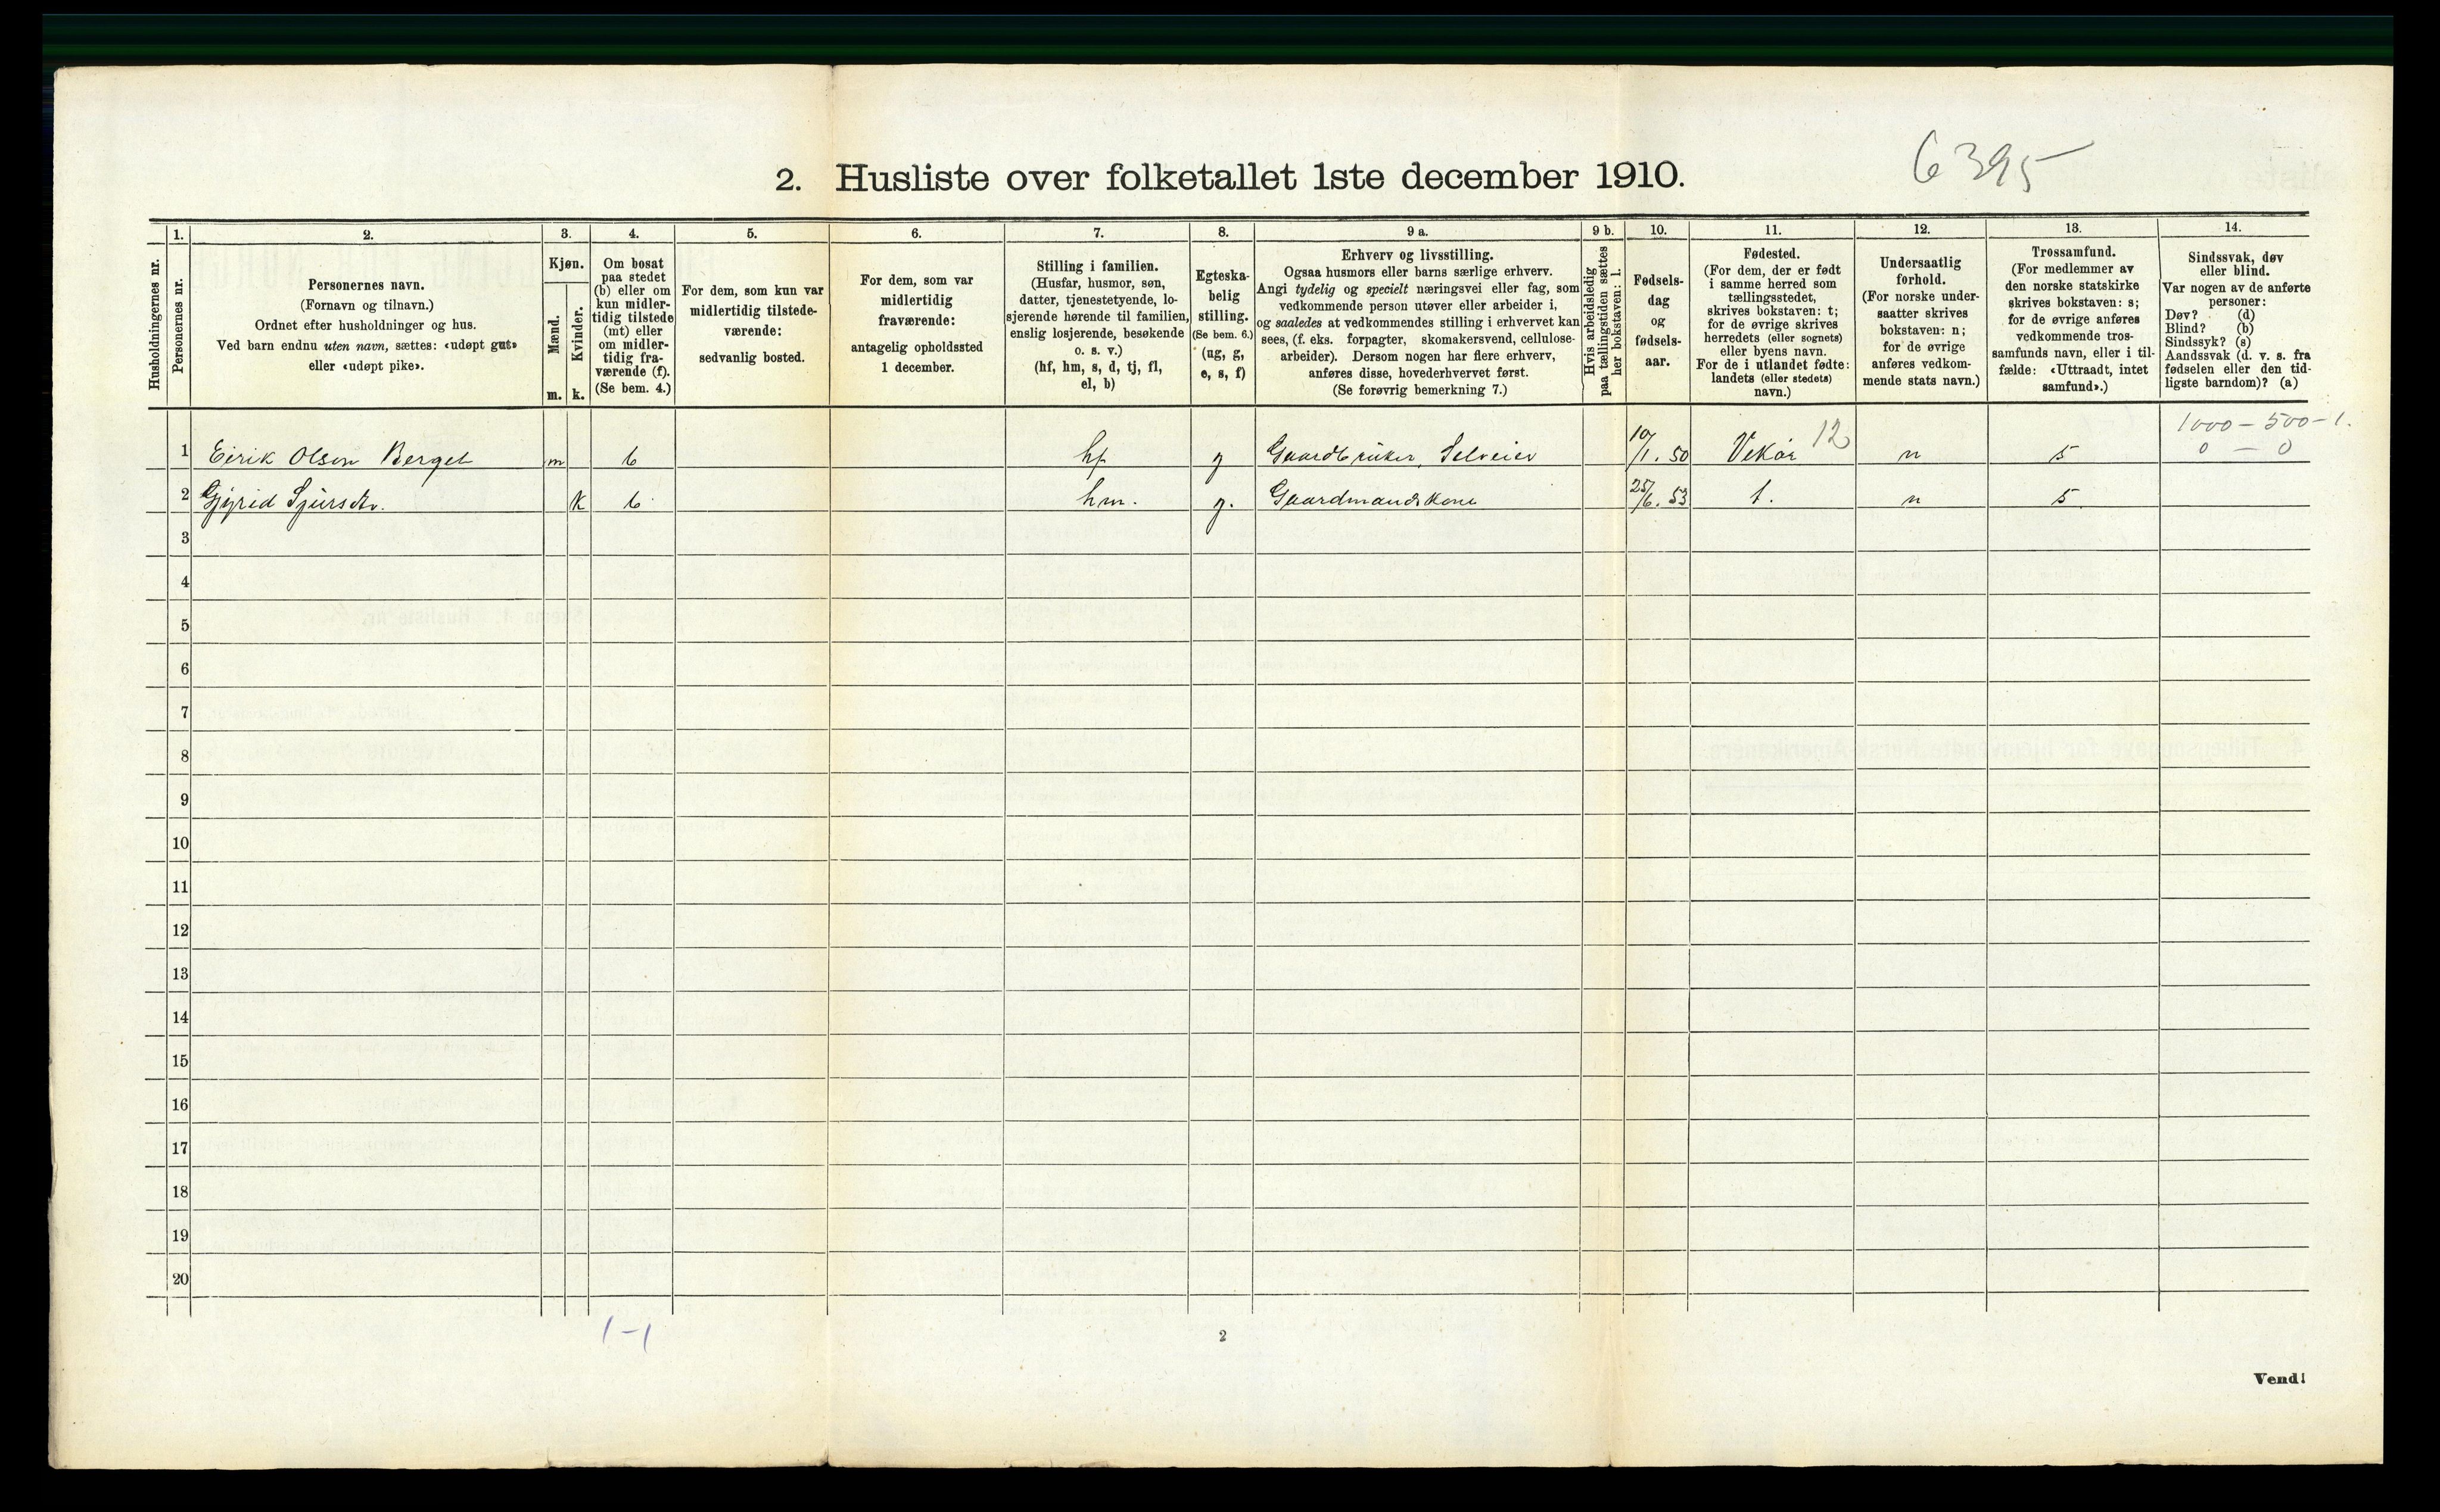 6395
2. Husliste over folketallet 1ste december 1910.
Husholdningernes nr.
1.
Personernes nr.
2.
Personernes navn.
(Fornavn og tilnavn.)
Ordnet efter husholdninger og hus.
Ved barn endnu uten navn, sættes: «udøpt gut»
eller «udøpt pike».
3.
Kjøn.
Mænd.
Kvinder.
m. k.
4.
Om bosat
paa stedet
(b) eller om
kun midler-
tidig tilstede
(mt) eller
om midler-
tidig fra-
værende (f).
(Se bem. 4.)
5.
For dem, som kun var
midlertidig tilstede-
værende:
sedvanlig bosted.
6.
For dem, som var
midlertidig
fraværende:
antagelig opholdssted
1 december.
7.
Stilling i familien.
(Husfar, husmor, søn,
datter, tjenestetyende, lo-
sjerende hørende til familien,
enslig losjerende, besøkende
o. s. v.)
(hf, hm, s, d, tj, fl,
el, b)
8.
Egteska-
belig
stilling.
(Se bem. 6.)
(ug, g,
e, s, f)
9 a.
Erhverv og livsstilling.
Ogsaa husmors eller barns særlige erhverv.
Angi tydelig og specielt næringsvei eller fag, som
vedkommende person utøver eller arbeider i,
og saaledes at vedkommendes stilling i erhvervet kan
sees, (f. eks. forpagter, skomakersvend, cellulose-
arbeider). Dersom nogen har flere erhverv,
anføres disse, hovederhvervet først.
(Se forøvrig bemerkning 7.)
9 b.
Hvis arbeidsledig
paa tællingstiden sættes
her bokstaven: l.
10.
Fødsels-
dag
og
fødsels-
aar.
11.
Fødested.
(For dem, der er født
i samme herred som
tællingsstedet,
skrives bokstaven: t;
for de øvrige skrives
herredets (eller sognets)
eller byens navn.
For de i utlandet fødte:
landets (eller stedets)
navn.)
12.
Undersaatlig
forhold.
(For norske under-
saatter skrives
bokstaven: n;
for de øvrige
anføres vedkom-
mende stats navn.)
13.
Trossamfund.
(For medlemmer av
den norske statskirke
skrives bokstaven: s;
for de øvrige anføres
vedkommende tros-
samfunds navn, eller i til-
fælde: «Uttraadt, intet
samfund».)
14.
Sindssvak, døv
eller blind.
Var nogen av de anførte
personer:
Døv? (d)
Blind? (b)
Sindssyk? (s)
Aandssvak (d. v. s. fra
fødselen eller den tid-
ligste barndom)? (a)
1000 - 500 - 1.
1 Eirik Olson Berget m b hf g Gaardbruker, Selveier 10/1. 50 Vikør 12 n s 0 - 0
2 Gjyrid Sjursdtr. k b hm. g. Gaardmandskone 25/6. 53 t. n s
3
4
5
6
7
8
9
10
11
12
13
14
15
16
17
18
19
20
1-1
2
Vend!